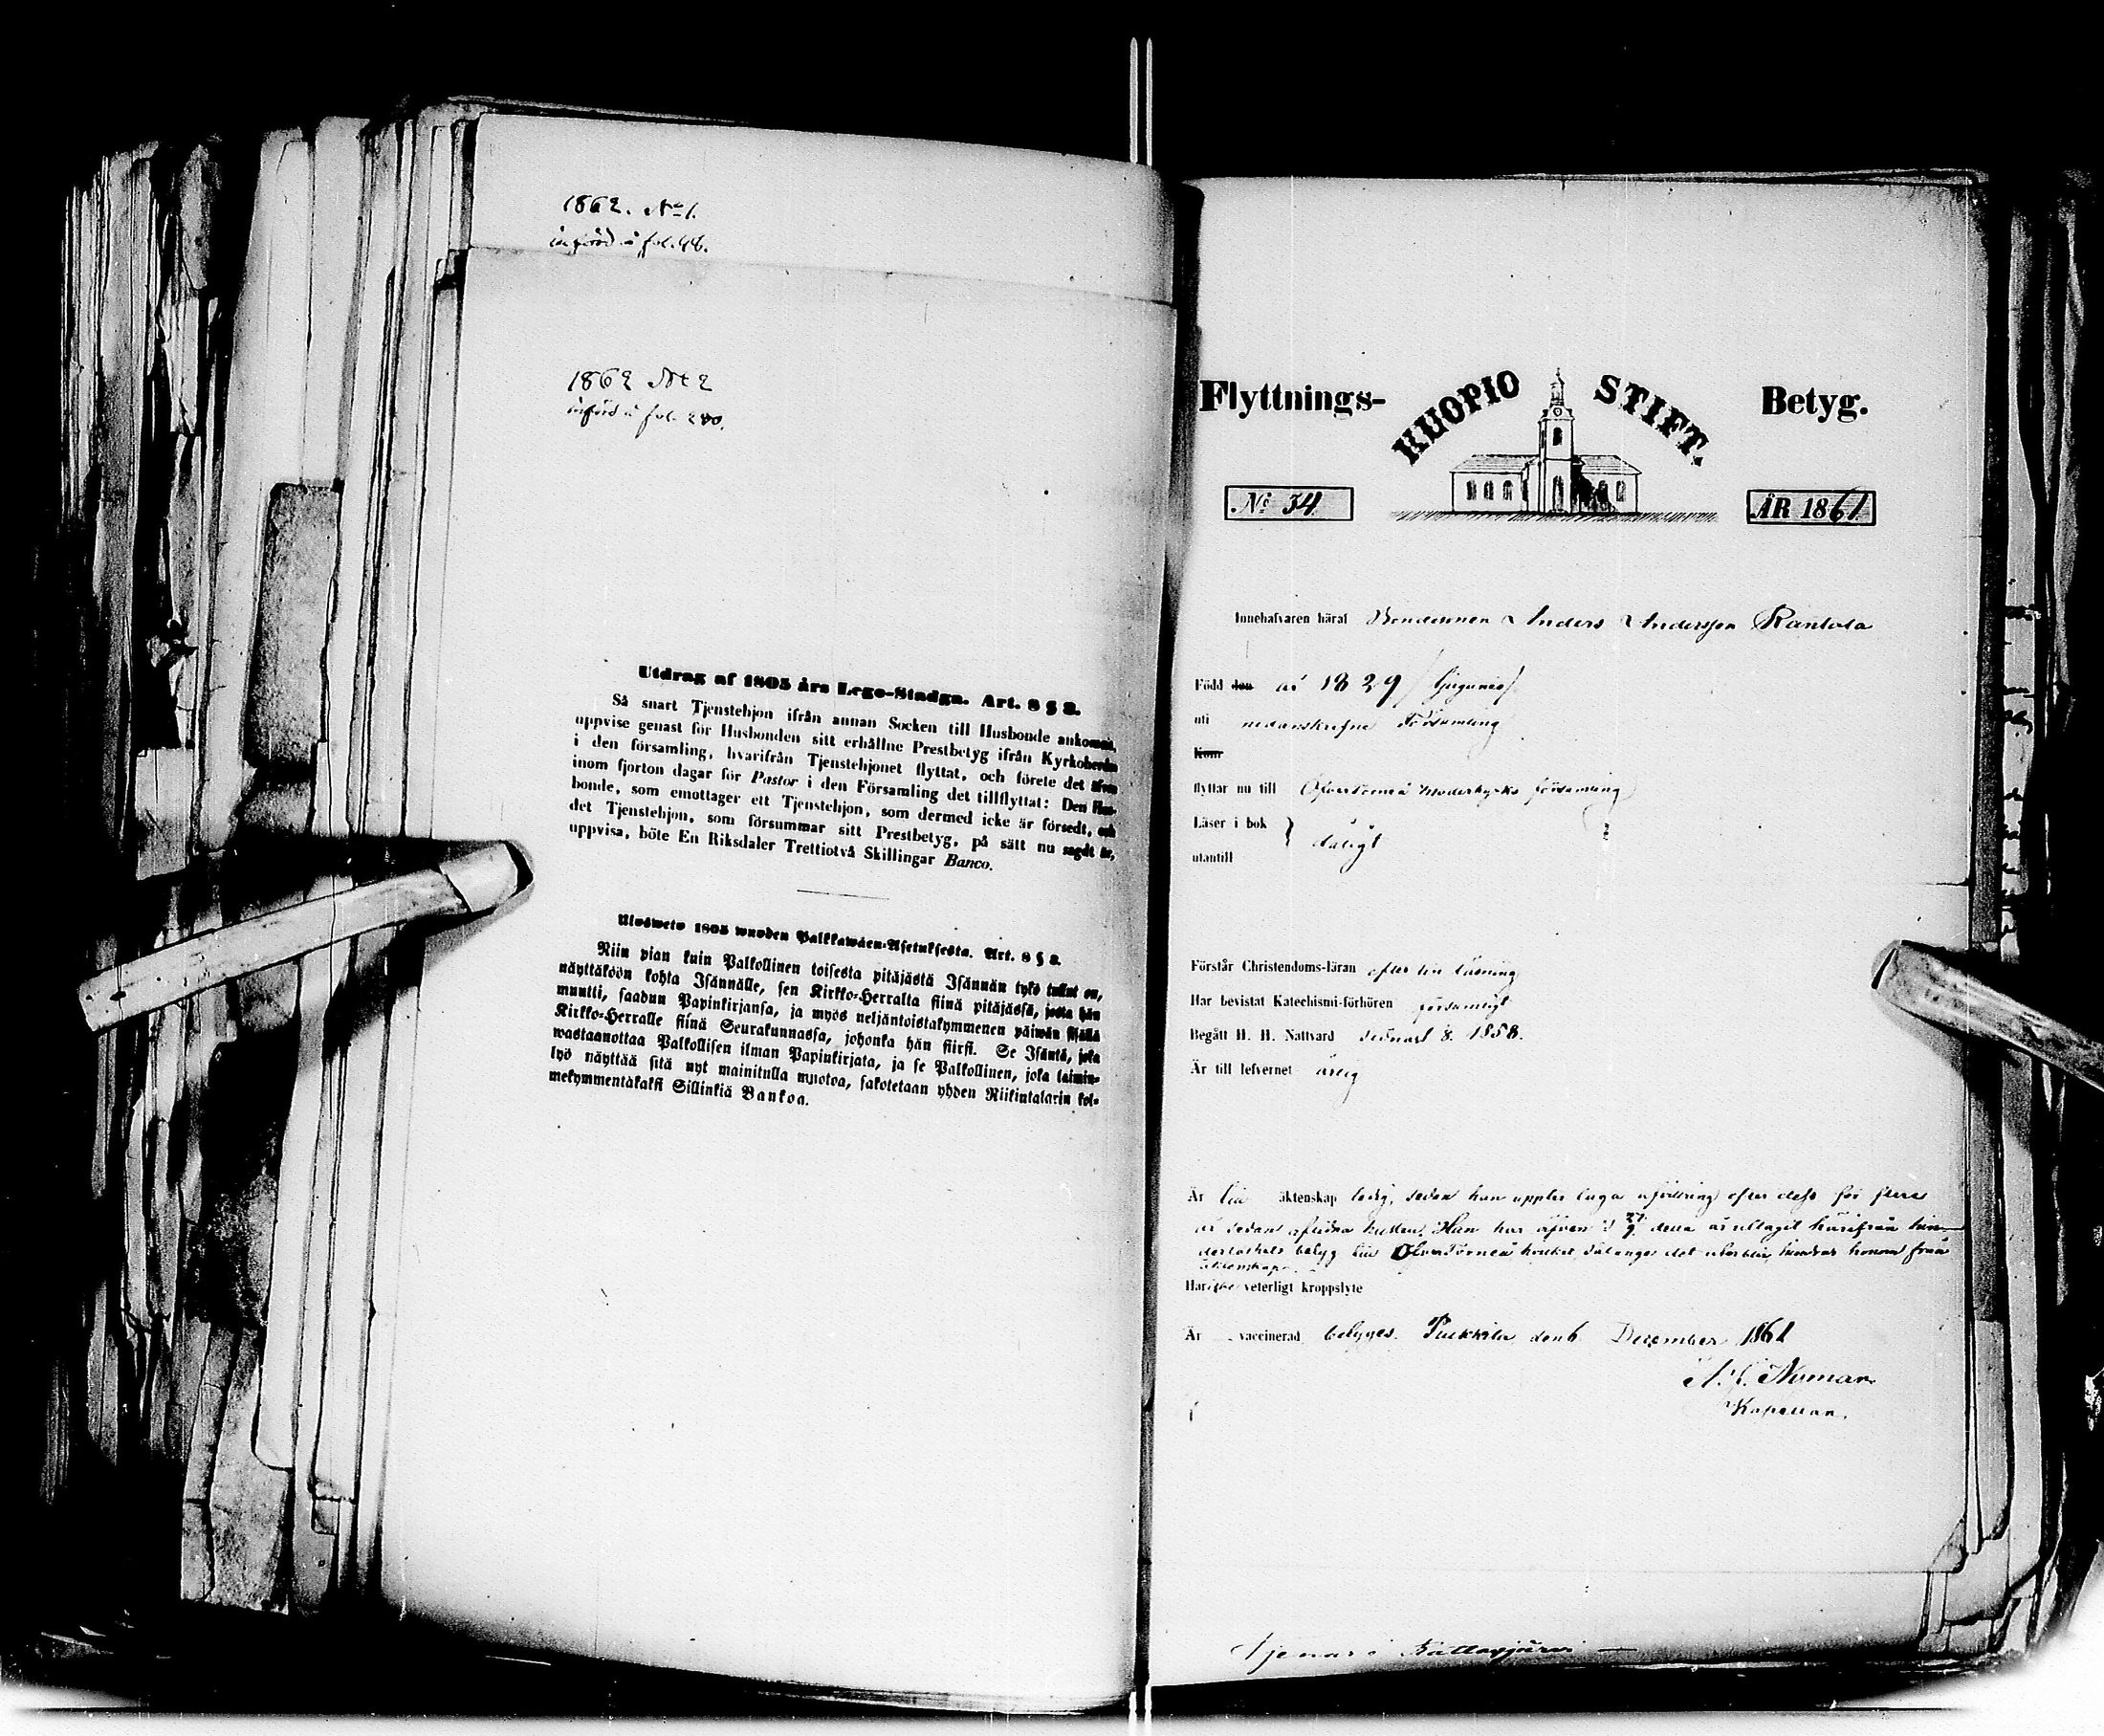 1862. No 1.
införd å fol. 48.
1862 No 2
införd å fol. 280.
Utdrag af 1805 års Lego-Stadga. Art. 8 § 2.
Så snart Tjenstehjon ifrån annan Socken till Husbonde ankommit,
uppvise genast för Husbonden sitt erhållne Prestbetyg ifrån Kyrkoherden
i den församling, hvarifrån Tjenstehjonet flyttat, och förete det äfven
inom fjorton dagar för Pastor i den Församling det tillflyttat: Den Hus-
bonde, som emottager ett Tjenstehjon, som dermed icke är försedt, och
det Tjenstehjon, som försummar sitt Prestbetyg, på sätt nu sagdt är,
uppvisa, böte En Riksdaler Trettiotvå Skillingar Banco.
Ulosweto 1805 wuoden Palkkawäen-Asetuksesta. Art. 8 § 2.
Niin pian kuin Palkollinen toisesta pitäjästä Isännän tykö tullut on,
näyttäköön kohta Isännälle, sen Kirkko-Herralta siinä pitäjässä, josta hän
muutti, saadun Papinkirjansa, ja myös neljäntoistakymmenen päiwän sisällä
Kirkko-Herralle siinä Seurakunnassa, johonka hän siirsi. Se Isäntä, joka
wastaanottaa Palkollisen ilman Papinkirjata, ja se Palkollinen, joka laimin-
lyö näyttää sitä nyt mainitulla muotoa, sakotetaan yhden Riikintalarin kol-
mekymmentäkaksi Sillinkiä Bankoa.
Flyttnings- KUOPIO STIFT. Betyg.
No 34 ÅR 1861
Innehafvaren häraf Bondesonen Anders Andersson Rantala
Född den år 1829
uti nedanskrifne Församling
Kom
flyttar nu till Öfvertorneå Moderkyrko församling
Läser i bok
dåligt
utantill
Förstår Christendoms-läran efter sin läsning
Har bevistat Katechismi-förhören försumligt
Begått H. H. Nattvard sednast 8. 1858.
Är till lefvernet ärlig
Är till äktenskap ledig, sedan han laga afvittring efter dess för flere
år sedan aflidna hustru. Han har äfven d 27/9 detta år uttagit härifrån hin-
derlöshets betyg till Öfvertorneå hvilket, så länge det uteblir, hindrar honom från
äktenskap.
Har icke veterligt kroppslyte
Är vaccinerad betyges. Pukkila den 6 December 1861
Numan
Kapellan.
Tjenar i Rattosjärvi